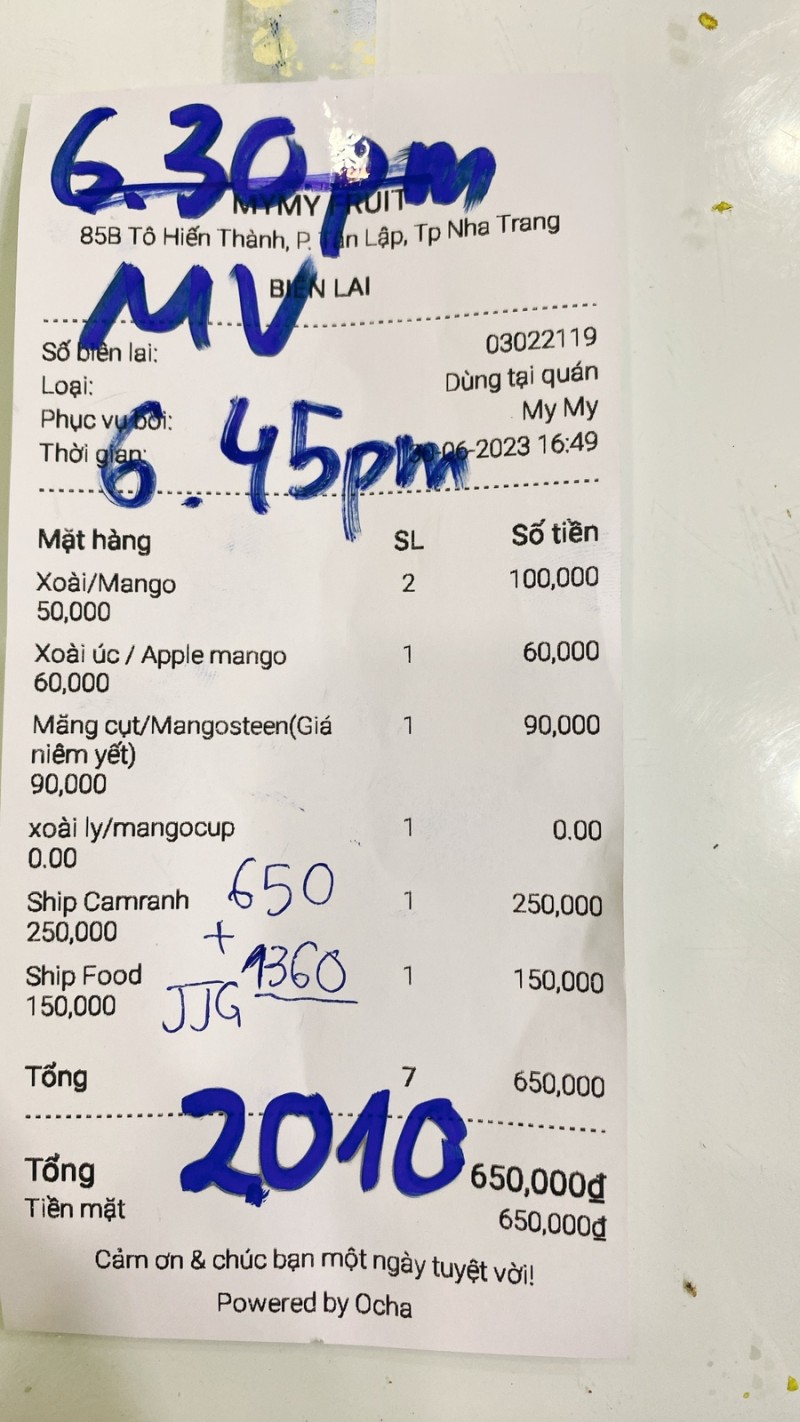 6.30pm
MYMY FRUIT
85B Tô Hiến Thành, P. Tân Lập, Tp Nha Trang
MV
BIÊN LAI
Số biên lai: 03022119
Loại: Dùng tại quán
Phục vụ bởi: My My
Thời gian: 30-06-2023 16:49
6.45pm
Mặt hàng SL Số tiền
Xoài/Mango 2 100,000
50,000
Xoài úc / Apple mango 1 60,000
60,000
Măng cụt/Mangosteen(Giá 1 90,000
niêm yết)
90,000
xoài ly/mangocup 1 0.00
0.00
650
Ship Camranh 1 250,000
250,000
+
1360
Ship Food 1 150,000
150,000
JJG
Tổng 7 650,000
2.010
Tổng 650,000₫
Tiền mặt 650,000₫
Cảm ơn & chúc bạn một ngày tuyệt vời!
Powered by Ocha